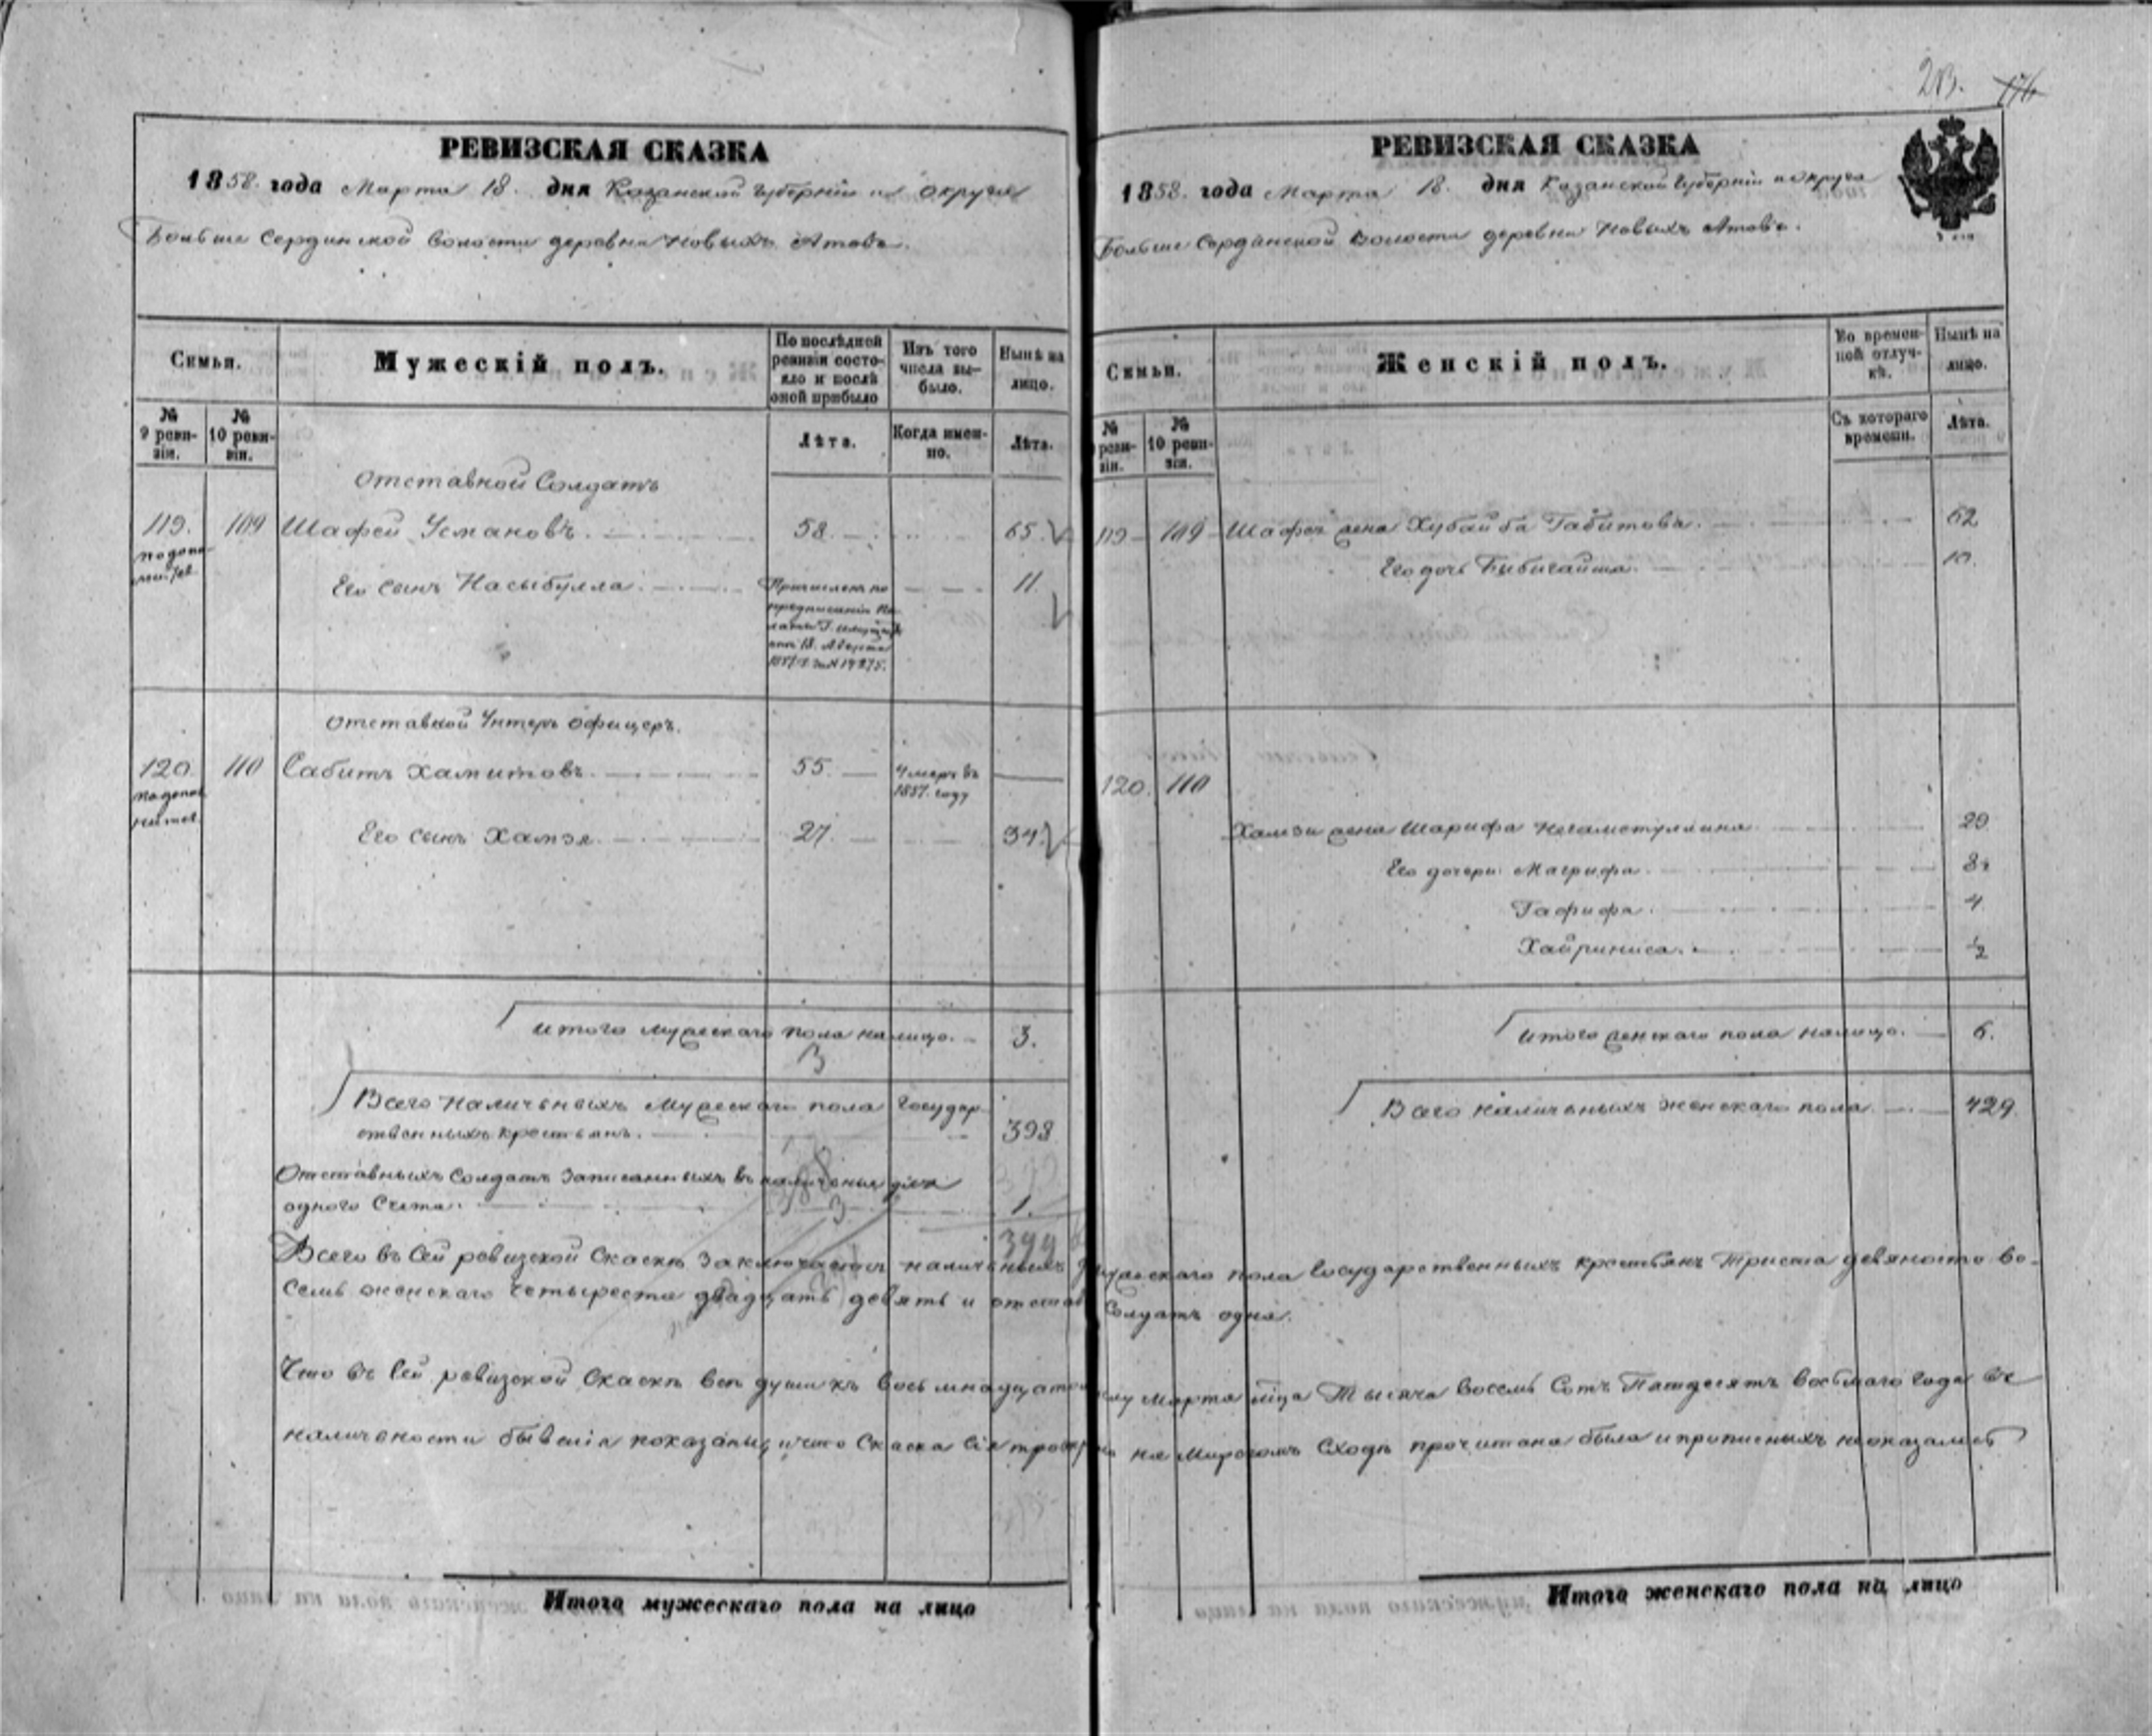 213. 176
РЕВИЗСКАЯ СКАЗКА
1858. года Марта 18. дня Казанской Губерніи и округа
Больше Сердинской волости деревни Новыхъ Атовъ.
Семьи.
Мужескій полъ.
По послѣдней ревизіи состояло и послѣ оной прибыло
Изъ того числа выбыло.
Нынѣ на лицо.
№ 9 ревизіи.
№ 10 ревизіи.
Лѣта.
Когда именно.
Лѣта.
Отставной Солдатъ
119. 109 Шафей Усмановъ. 58. 65.
по дополнител.
Его сынъ Насыбулла. 11.
Причисленъ по
предписанію Па
латы Г. Имущ.
отъ 13. Августа
Отставной Унтеръ офицеръ.
120. 110 Сабитъ Хамитовъ. 55. Умеръ въ
1857. году
по дополнител.
Его сынъ Хамзя. 27. 34.
Итого мужескаго пола налицо. 3.
3
Всего наличныхъ мужескаго пола Государ
ственныхъ крестьянъ. 398
Отставныхъ Солдатъ записанныхъ въ наличные для
одного Счета. 1.
399
РЕВИЗСКАЯ СКАЗКА
1858. года Марта 18. дня Казанской Губерніи и округа
Больше Сердинской волости деревни Новыхъ Атовъ.
Семьи.
Женскій полъ.
Во временной отлучкѣ.
Нынѣ на лицо.
№ ревизіи.
№ 10 ревизіи.
Съ котораго времени.
Лѣта.
119 109 Шафея жена Хубайба Габитова. 62
Его дочь Бибигайша. 10.
120. 110
Хамзи жена Шарифа Негаметуллина 29
Его дочери Магрифа. 8.
Гафифа. 4
Хайриниса. ½
Итого женскаго пола налицо. 6.
Всего наличныхъ женскаго пола 429
Всего въ сей ревизской Сказкѣ заключается наличныхъ мужескаго пола Государственныхъ крестьянъ Триста девяносто во-
семь женскаго четыреста двадцать девять и отстав Солдатъ одна.
Что въ сей ревизской Сказкѣ всѣ души къ восьмнадцатому Марта м͠ца Тысяча восемь Сотъ Пятдесятъ восьмаго года въ
наличности бывшія показаны, и что Сказка сія на Мирскомъ Сходѣ прочитана была и прописныхъ неоказалось
Итого мужескаго пола на лицо
Итого женскаго пола на лицо